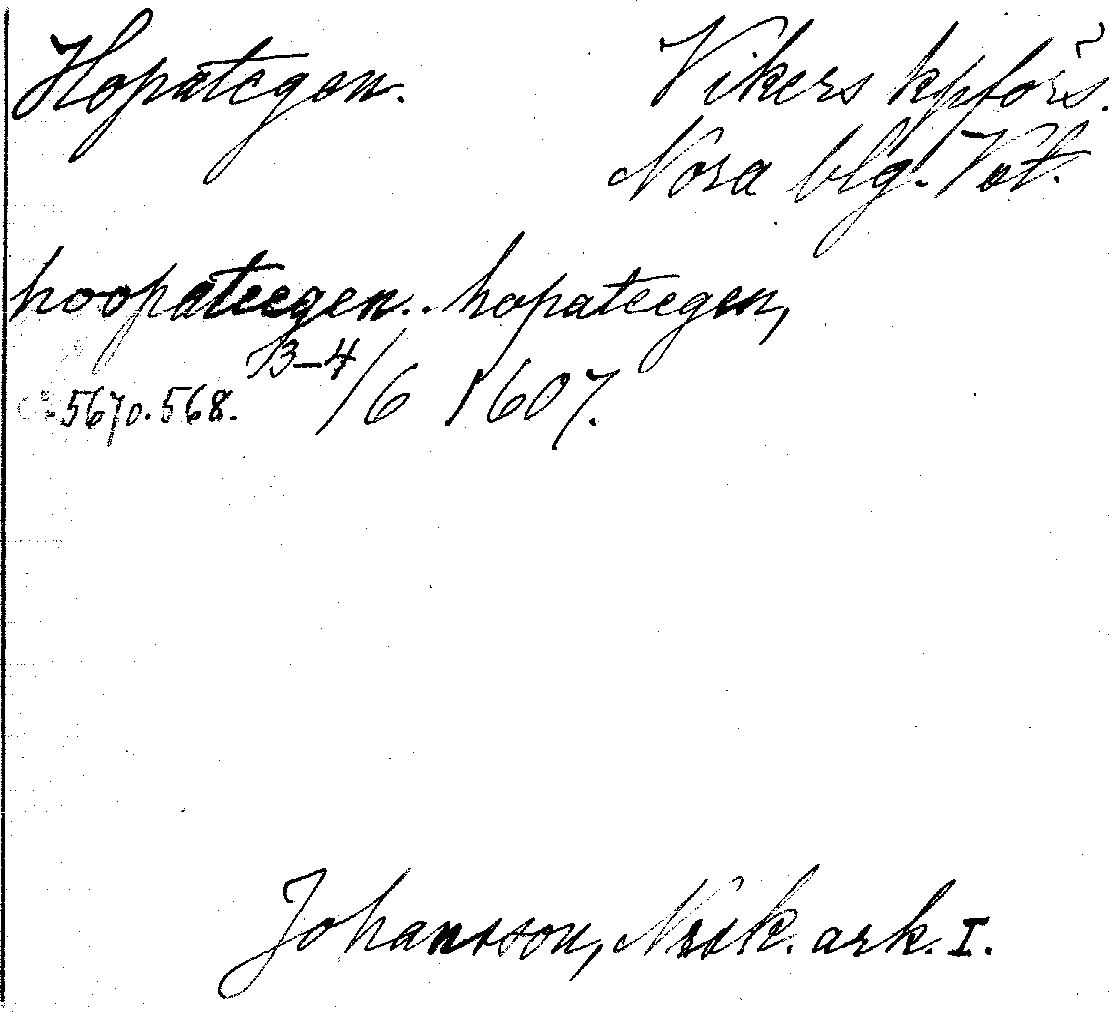 Hopategen. Vikers kpförs.
Nora blg. Vstl.
hoopateegen.. hopateegen,
567 o. 568. 3–4/6 1607.
Johansson, Nrsk. ark. I.